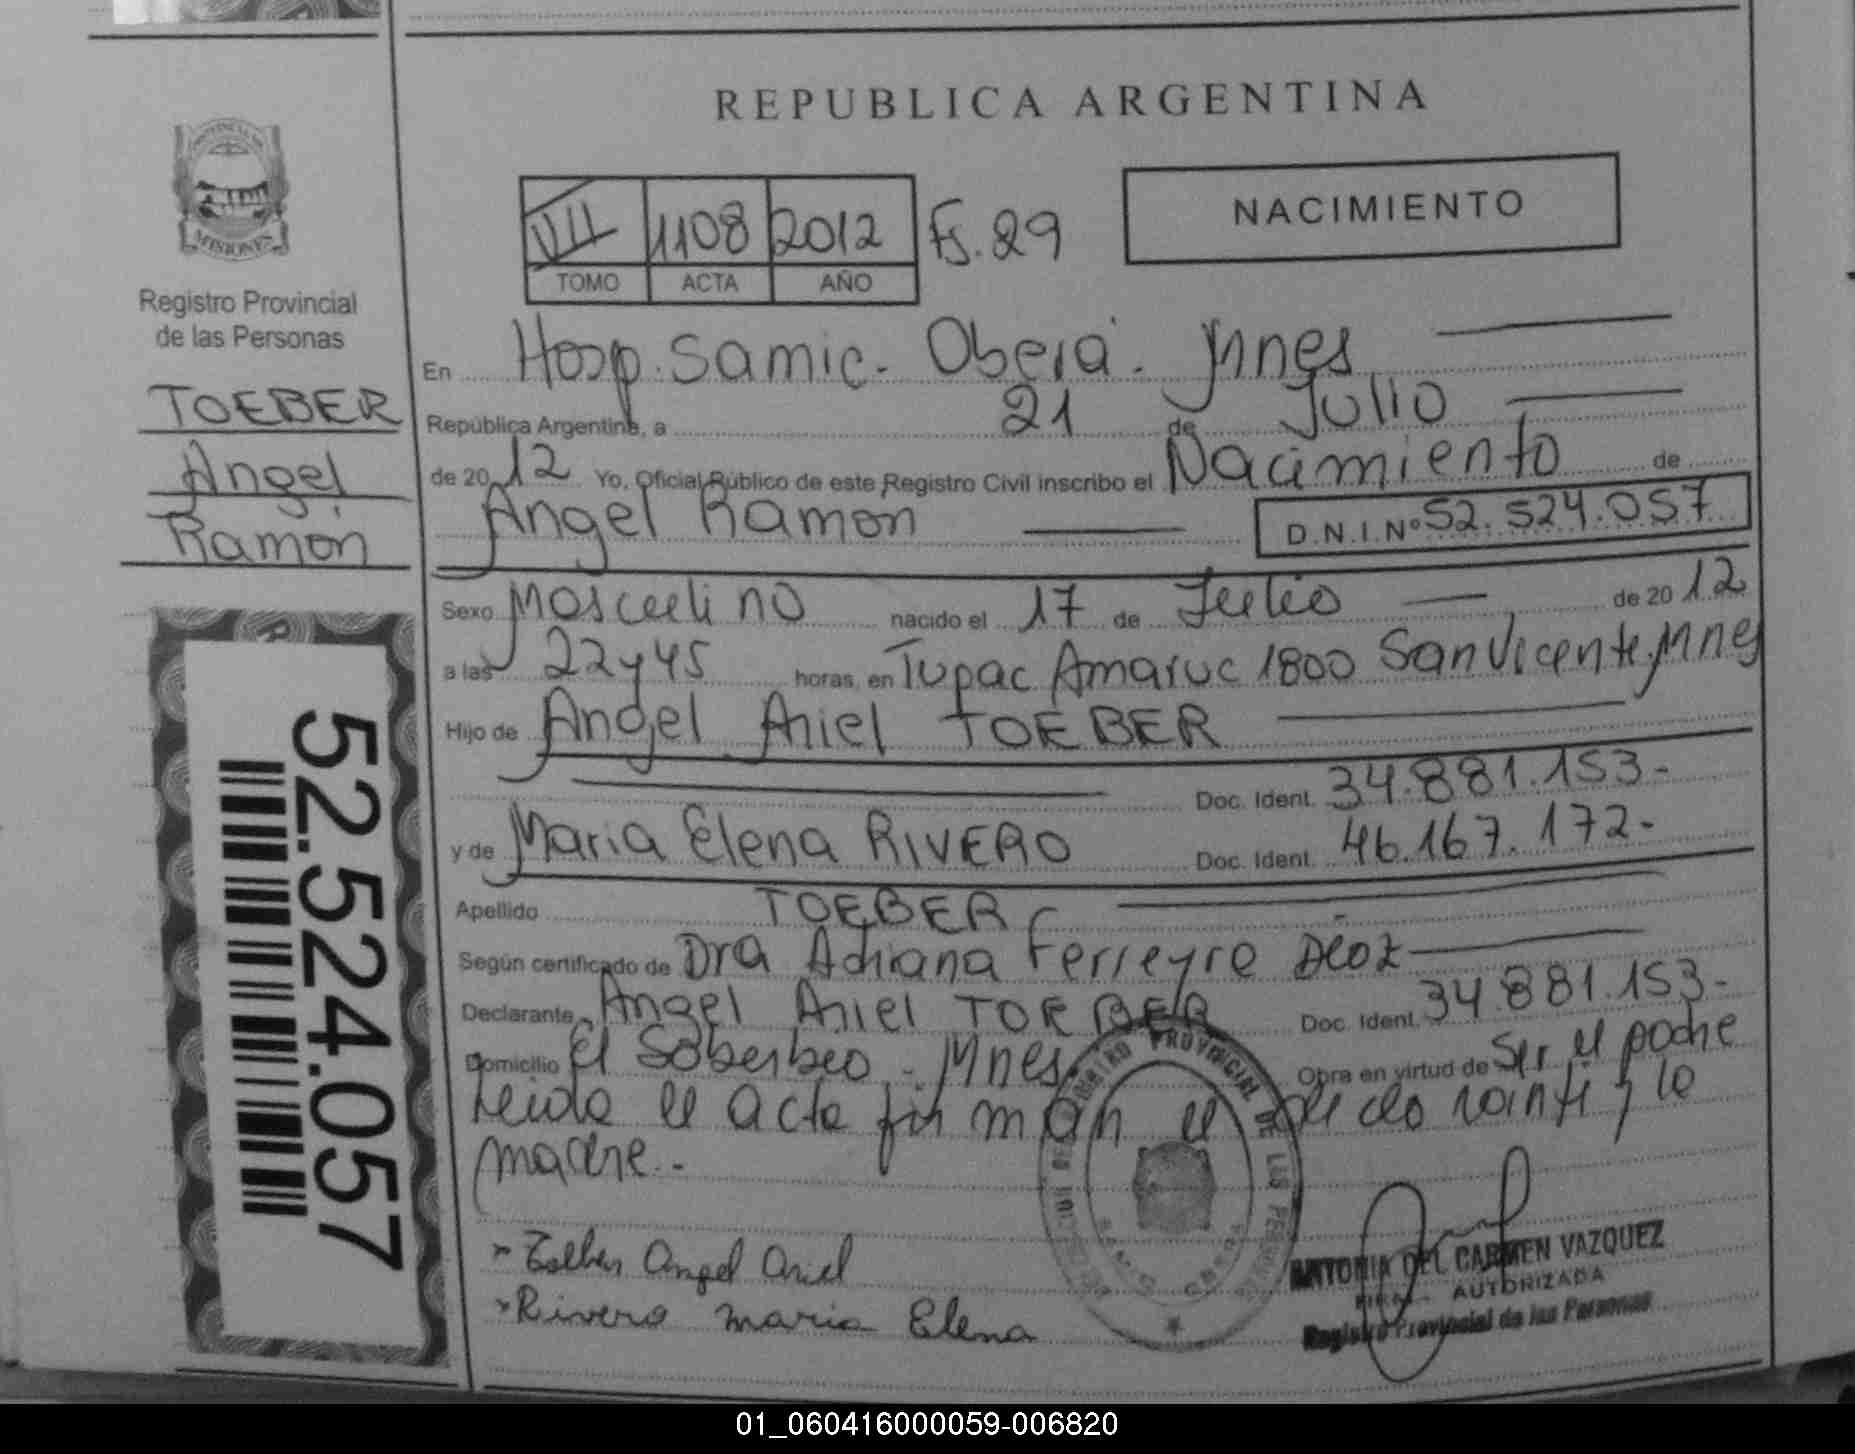 REPUBLICA ARGENTINA
PROVINCIA DE
MISIONES
Registro Provincial
de las Personas
TOEBER
Angel
Ramón
52.524.057
VII 1108 2012 Fs. 29
TOMO ACTA AÑO
NACIMIENTO
En Hosp. Samic. Oberá. Mnes
República Argentina, a 21 de Julio
de 2012 Yo, Oficial Público de este Registro Civil inscribo el Nacimiento de
Angel Ramon D.N.I.Nº 52.524.057
Sexo Masculino nacido el 17 de Julio de 2012
a las 22 y 45 horas, en Tupac Amaruc 1800 San Vicente Mnes
Hijo de Angel Ariel TOEBER
Doc. Ident. 34.881.153-
y de Maria Elena RIVERO Doc. Ident. 46.167.172-
Apellido TOEBER
Según certificado de Dra Adriana Ferreyre
Declarante Angel Ariel TOEBER Doc. Ident. 34.881.153-
Domicilio El Soberbio - Mnes Obra en virtud de Ser el padre
Leida el acta firman el declarante y la
madre.-
REGISTRO PROVINCIAL DE LAS PERSONAS
Angel Ariel
Rivero Maria Elena
ANTONIA DEL CARMEN VAZQUEZ
FIRMA AUTORIZADA
Registro Provincial de las Personas
01_060416000059-006820